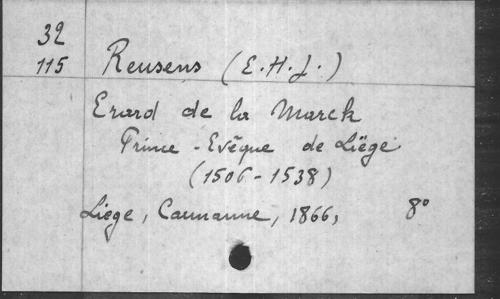 32
115
Reusens (E.H.J.)
Erard de la Marck
Prince-Evêque de Liège
(1506-1538)
Liège, Carmanne, 1866, 8°